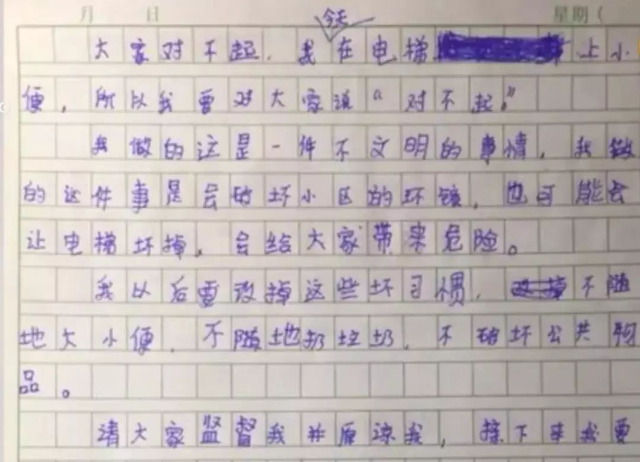 月 日 今天 星期(
大家对不起,我在电梯上小
便,所以我要对大家说“对不起。”
我做的这是一件不文明的事情,我做
的这件事是会破坏小区的环镜,也可能会
让电梯坏掉,会给大家带来危险。
我以后要改掉这些坏习惯,不随
地大小便,不随地扔垃圾,不破坏公共物
品。
请大家监督我并原谅我,接下来我要